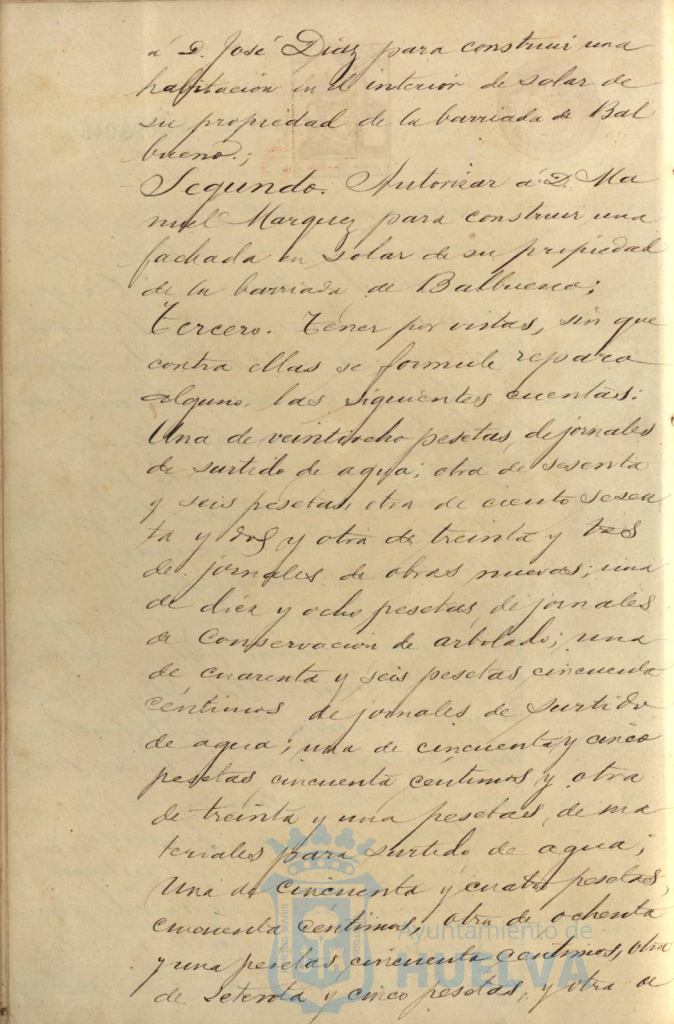 á D. José Diaz para construir una
habitación en el interior de solar de
su propiedad de la barriada de Bal
bueno;
Segundo. Autorizar á D. Ma
nuel Marquez para construir una
fachada en solar de su propiedad
de la barriada de Balbueno;
Tercero. Tener por vistas, sin que
contra ellas se formule reparo
alguno, las siguientes cuentas:
Una de veintiocho pesetas, de jornales
de surtido de agua; otra de sesenta
y seis pesetas, otra de ciento sesen
ta y dos y otra de treinta y tres
de jornales de obras nuevas; una
de diez y ocho pesetas, de jornales
de Conservacion de arbolado; una
de cuarenta y seis pesetas cincuenta
céntimos de jornales de surtido
de agua; una de cincuenta y cinco
pesetas cincuenta céntimos y otra
de treinta y una pesetas, de ma
teriales para surtido de agua;
Una de cincuenta y cuatro pesetas,
cincuenta céntimos, otra de ochenta
y una pesetas, cincuenta centimos, otra
de setenta y cinco pesetas, y otra de
Ayuntamiento de
HUELVA